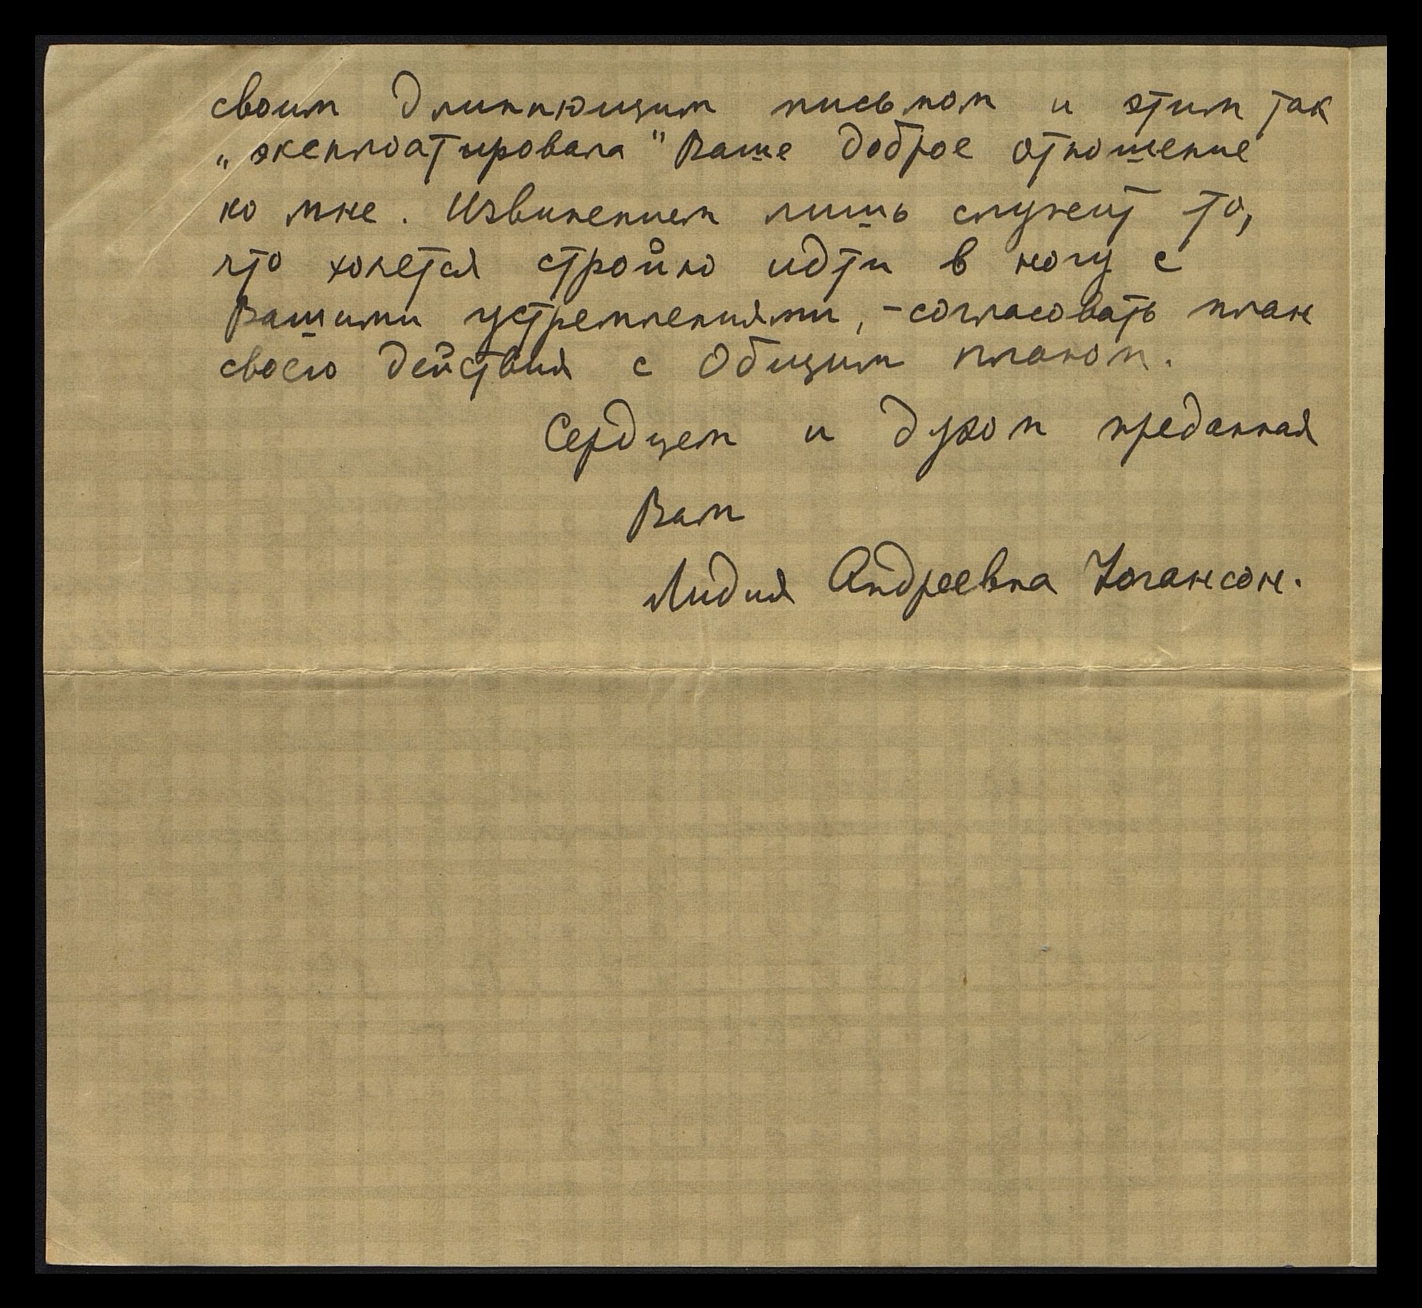 своим длиннющим письмом и этим так
„эксплоатировала" Ваше доброе отношение
ко мне. Извинением лишь служит то,
что хочется стройно идти в ногу с
Вашими устремлениями, - согласовать план
своего действия с Общим планом.
Сердцем и духом преданная
Вам
Лидия Андреевна Иогансон.